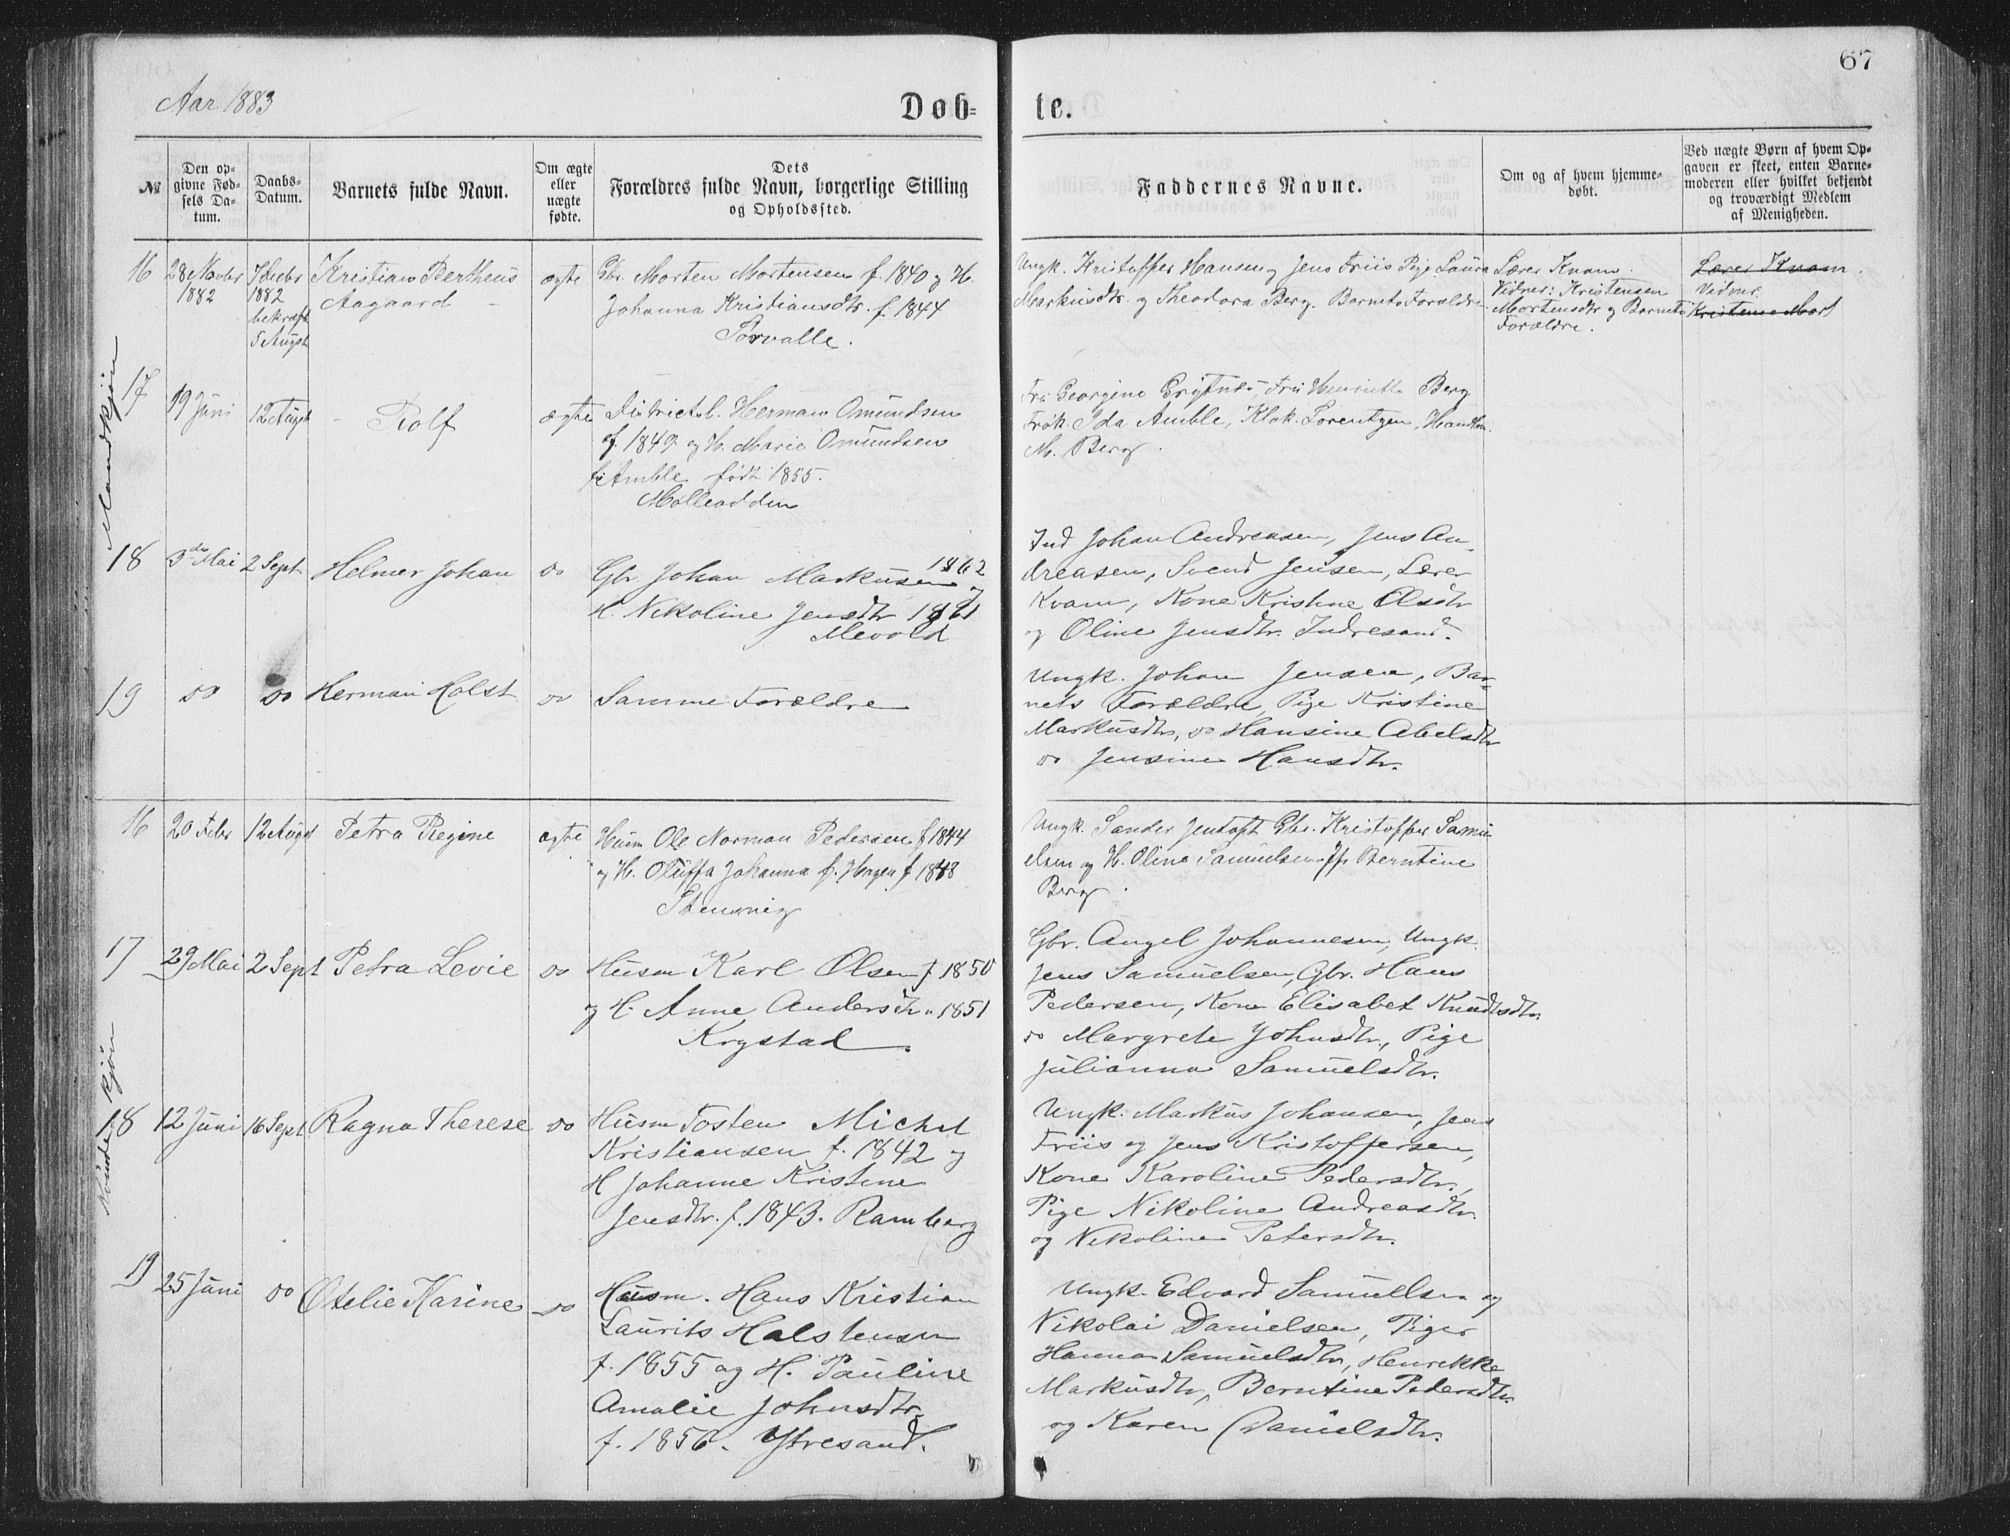 67
Aar 1883
Døb-
te.
№
Den op-
givne Fød-
sels Da-
tum.
Daabs-
Datum.
Barnets fulde Navn.
Om ægte
eller
uægte
fødte.
Dets
Forældres fulde Navn, borgerlige Stilling
og Opholdssted.
Faddernes Navne.
Om og af hvem hjemme-
døbt.
Ved uægte Børn af hvem Op-
gaven er skeet, enten Barne-
moderen eller hvilket bekjendt
og troværdigt Medlem
af Menigheden.
Mandkjøn
16
28 Novbr
1882
7 Decbr
1882
bekræft
5 Augst
Kristian Bertheus
Aagaard
ægte
Gbr. Morten Mortensen f. 1840 og H.
Johanna Kristiansdtr. f. 1844
Torvalle.
Ungk. Kristoffer Hansen og Jens Friis Pige Laura
Markusdtr. og Theodora Berg. Barnets Forældre.
Lærer Kvam.
Vidner: Kristensen
Mortensdtr og Barnets
Forældre.
Lærer Kvam
Vidner
Kristense Mort
17
19 Juni
12 Augst
Rolf
ægte
Districtsl. Herman Omundsen
f. 1849 og H. Marie Omundsen
f. Amble født 1855.
Mølleodden
Fru Georgine Fru Henriette Berg
Frøk. Ida Amble, Klok. Lorentzen, Handlm.
M. Berg.
18
3die Mai
2 Sept
Helmer Johan
do
Gbr. Johan Markusen 1862 og
H. Nikoline Jensdtr 1861
Mevold
Ind Johan Andreasen, Jens An-
dreasen, Svend Jensen, Lærer
Kvam, Kone Kristine Olsdtr
og Oline Jensdtr. Indresand.
19
do
do
Herman Holst
do
Samme Forældre
Ungk. Johan Jensen, Bar-
nets Forældre, Pige Kristine
Markusdtr, do Hansine Abelsdtr
do Jensine Hansdtr.
Kvindekjøn
16
20 Febr
12 Augst
Petra Regine
ægte
Husm Ole Norman Pedersen f 1844
og H. Oluffa Johanna f. Hagen f 1848
Stensvig
Ungk. Sander Jentoft Gbr. Kristoffer Samu-
elsen og H. Oline Samuelsen Jfr Berntine
Berg.
17
29 Mai
2 Sept
Petra Levie
do
Husm Karl Olsen f 1850
og H. Anne Andersdtr " 1851
Krystad.
Gbr. Angel Johannesen, Ungk.
Jens Samuelsen, Gbr. Hans
Pedersen, Kone Elisabet Knudtsdtr.
do Margrete Johnsdtr., Pige
Julianna Samuelsdtr.
18
12 Juni
16 Sept
Ragna Therese
do
Husm Tosten Michel
Kristiansen f. 1842 og
H Johanne Kristine
Jensdtr. f. 1843. Ramberg
Ungk. Markus Johansen, Jens
Friis og Jens Kristoffersen,
Kone Karoline Pedersdtr.,
Pige Nikoline Andreasdtr.
og Nikoline Petersdtr.
19
25 Juni
do
Otelie Karine
do
Husm. Hans Kristian
Laurits Halstensen
f. 1855 og H. Pauline
Amalie Johnsdtr.
f. 1856. Ytresand.
Ungk. Edvard Samuelsen og
Nikolai Danielsen, Piger
Hanna Samuelsdtr, Henrikke
Markusdtr, Berntine Pedersdtr.
og Karen Danielsdtr.